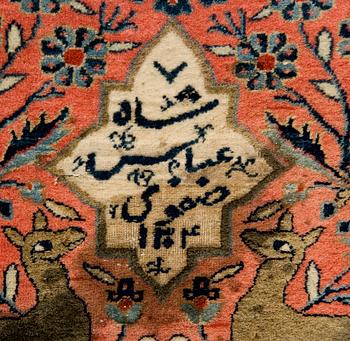 ۷
شاه
عباس
صفوی
۱۳۰۴